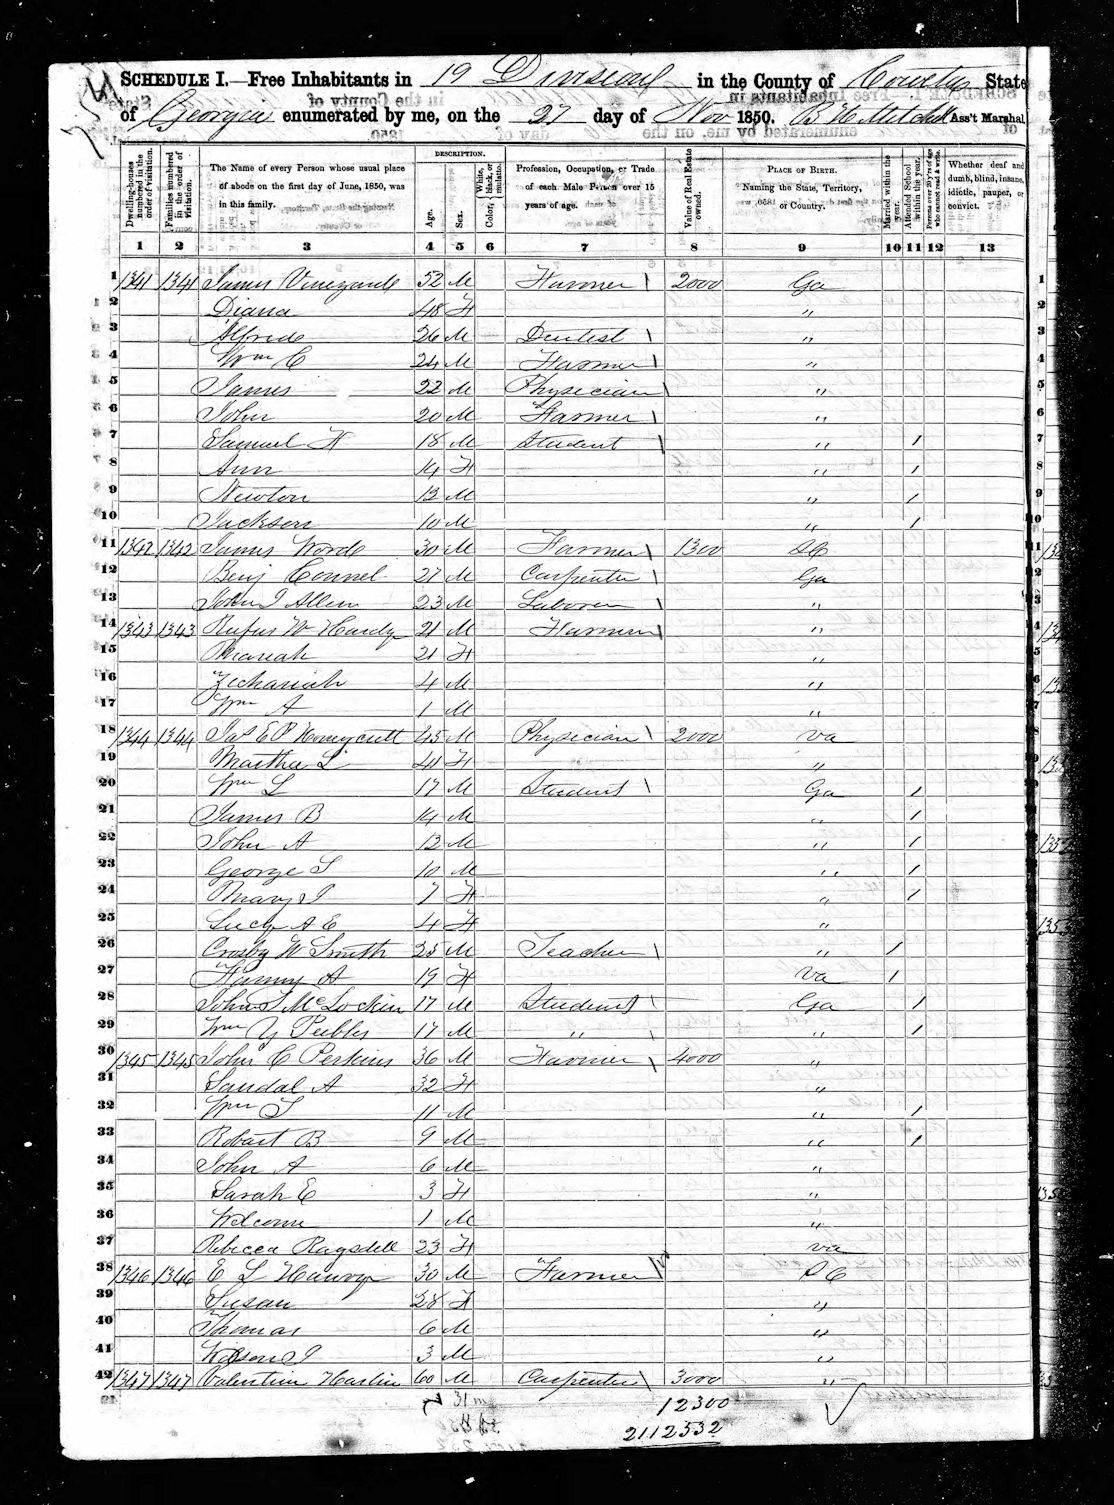 SCHEDULE I.—Free Inhabitants in 19 Division in the County of Coweta State
of Georgia enumerated by me, on the 27 day of Nov 1850. Ass't Marshal
DESCRIPTION.
Dwelling-houses numbered in the order of visitation.
Families numbered in the order of visitation.
The Name of every Person whose usual place of abode on the first day of June, 1850, was in this family.
Age.
Sex.
Color, White, black, or mulatto.
Profession, Occupation, or Trade of each Male Person over 15 years of age.
Value of Real Estate owned.
PLACE OF BIRTH. Naming the State, Territory, or Country.
Married within the year.
Attended School within the year.
Persons over 20 y'rs of age who cannot read & write.
Whether deaf and dumb, blind, insane, idiotic, pauper, or convict.
1 2 3 4 5 6 7 8 9 10 11 12 13
1 1341 1341 James Vineyard 52 M Farmer 2000 Ga
2 Diana 48 F "
3 Alfred 26 M Dentist "
4 Wm C 24 M Farmer "
5 James 22 M Physician "
6 John 20 M Farmer "
7 Samuel H 18 M Student " /
8 Ann 14 F " /
9 Newton 12 M " /
10 Jackson 10 M " /
11 1342 1342 James Word 30 M Farmer 1300 SC
12 Benj Connel 27 M Carpenter Ga
13 John J Allen 23 M Laborer "
14 1343 1343 Rufus W Hardy 21 M Farmer "
15 Mariah 21 F "
16 Zechariah 4 M "
17 Wm A 1 M "
18 1344 1344 Jas E P Honeycutt 45 M Physician 2000 Va
19 Martha L 41 F "
20 Wm L 17 M Student Ga /
21 James B 14 M " /
22 John A 12 M " /
23 George S 10 M " /
24 Mary J 7 F " /
25 Lucy A E 4 F "
26 Crosby W Smith 25 M Teacher " /
27 Fanny A 19 F Va /
28 John S 17 M Student Ga /
29 Wm Y Peebles 17 M " " /
30 1345 1345 John C Perkins 36 M Farmer 4000 "
31 Sandal A 32 F "
32 Wm T 11 M " /
33 Robart B 9 M " /
34 John A 6 M "
35 Sarah E 3 F "
36 Welcome 1 M "
37 Rebecca Ragsdell 23 F Va
38 1346 1346 E L 30 M Farmer SC
39 Susan 28 F "
40 Thomas 6 M "
41 3 M "
42 1347 1347 Valentine Harlin 60 M Carpenter 3000 "
12300
2112532